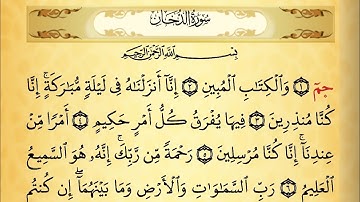 سُورَةُ الدُّخَانِ
بِسْمِ اللَّهِ الرَّحْمَٰنِ الرَّحِيمِ
حمٓ ١ وَالْكِتَابِ الْمُبِينِ ٢ إِنَّا أَنزَلْنَاهُ فِي لَيْلَةٍ مُّبَارَكَةٍ ۚ إِنَّا
كُنَّا مُنذِرِينَ ٣ فِيهَا يُفْرَقُ كُلُّ أَمْرٍ حَكِيمٍ ٤ أَمْرًا مِّنْ
عِندِنَا ۚ إِنَّا كُنَّا مُرْسِلِينَ ٥ رَحْمَةً مِّن رَّبِّكَ ۚ إِنَّهُ هُوَ السَّمِيعُ
الْعَلِيمُ ٦ رَبِّ السَّمَاوَاتِ وَالْأَرْضِ وَمَا بَيْنَهُمَا ۖ إِن كُنتُم